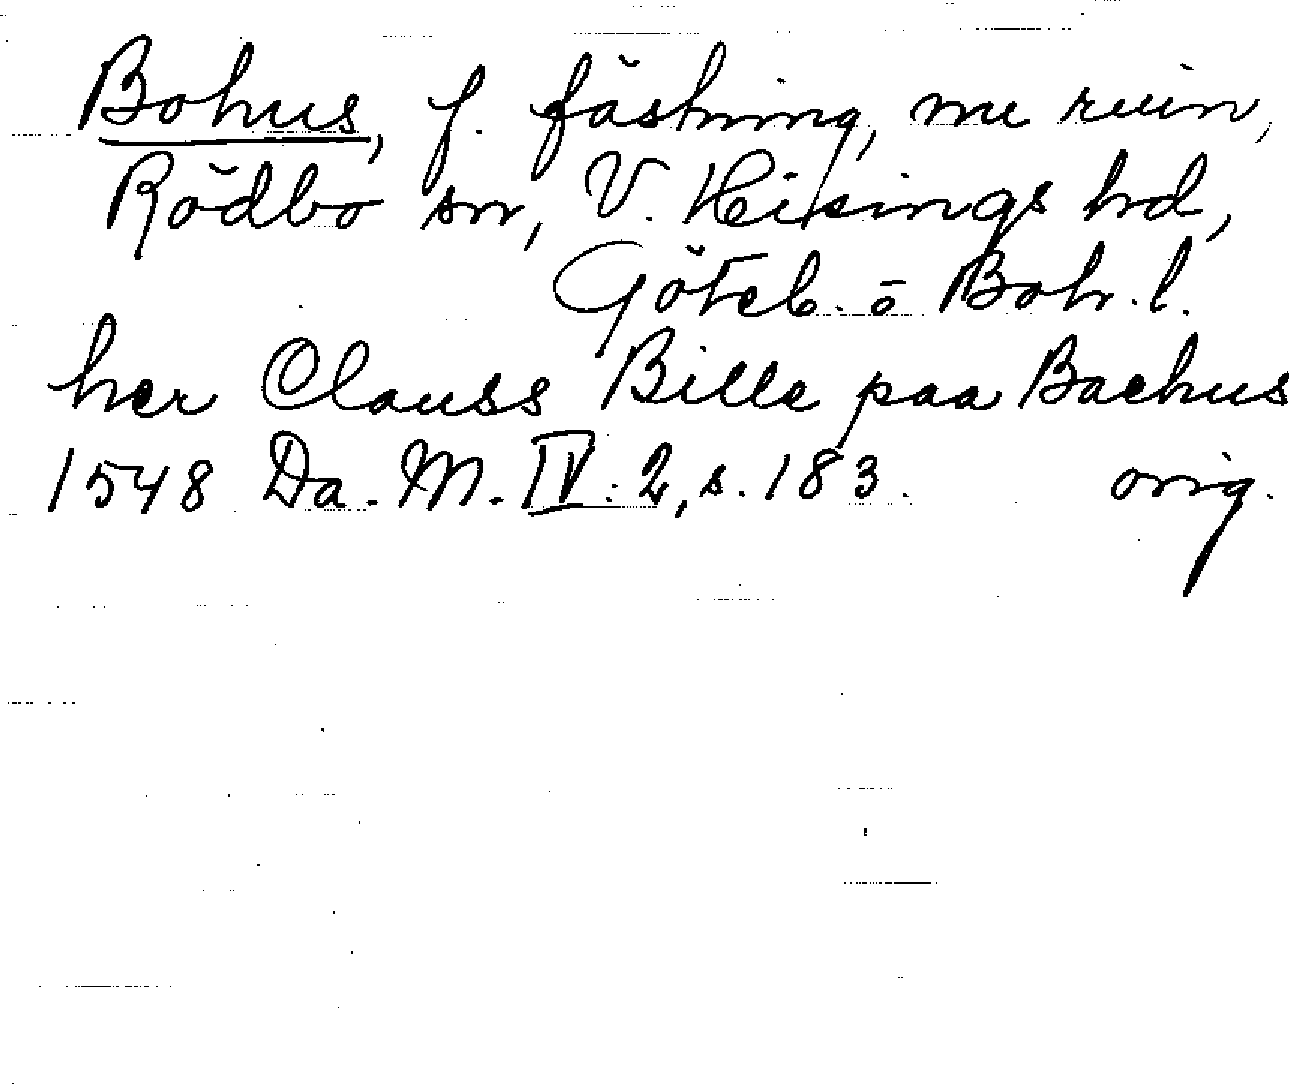 Bohus, f. fästning, nu ruin,
Rödbo sn, V. Hisings hd,
Göteb. o Boh. l.
her Clauss Bille paa Baehus
1548 Da. M. IV: 2, s. 183. orig.